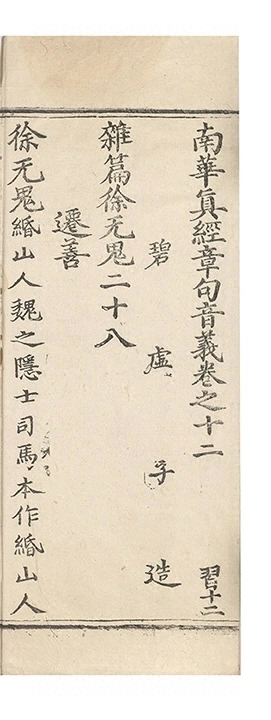 南華真經章句音義卷之十二 習十二
碧虛子造
雜篇徐无鬼二十八
遷善
徐无鬼緡山人魏之隱士司馬本作緡山人